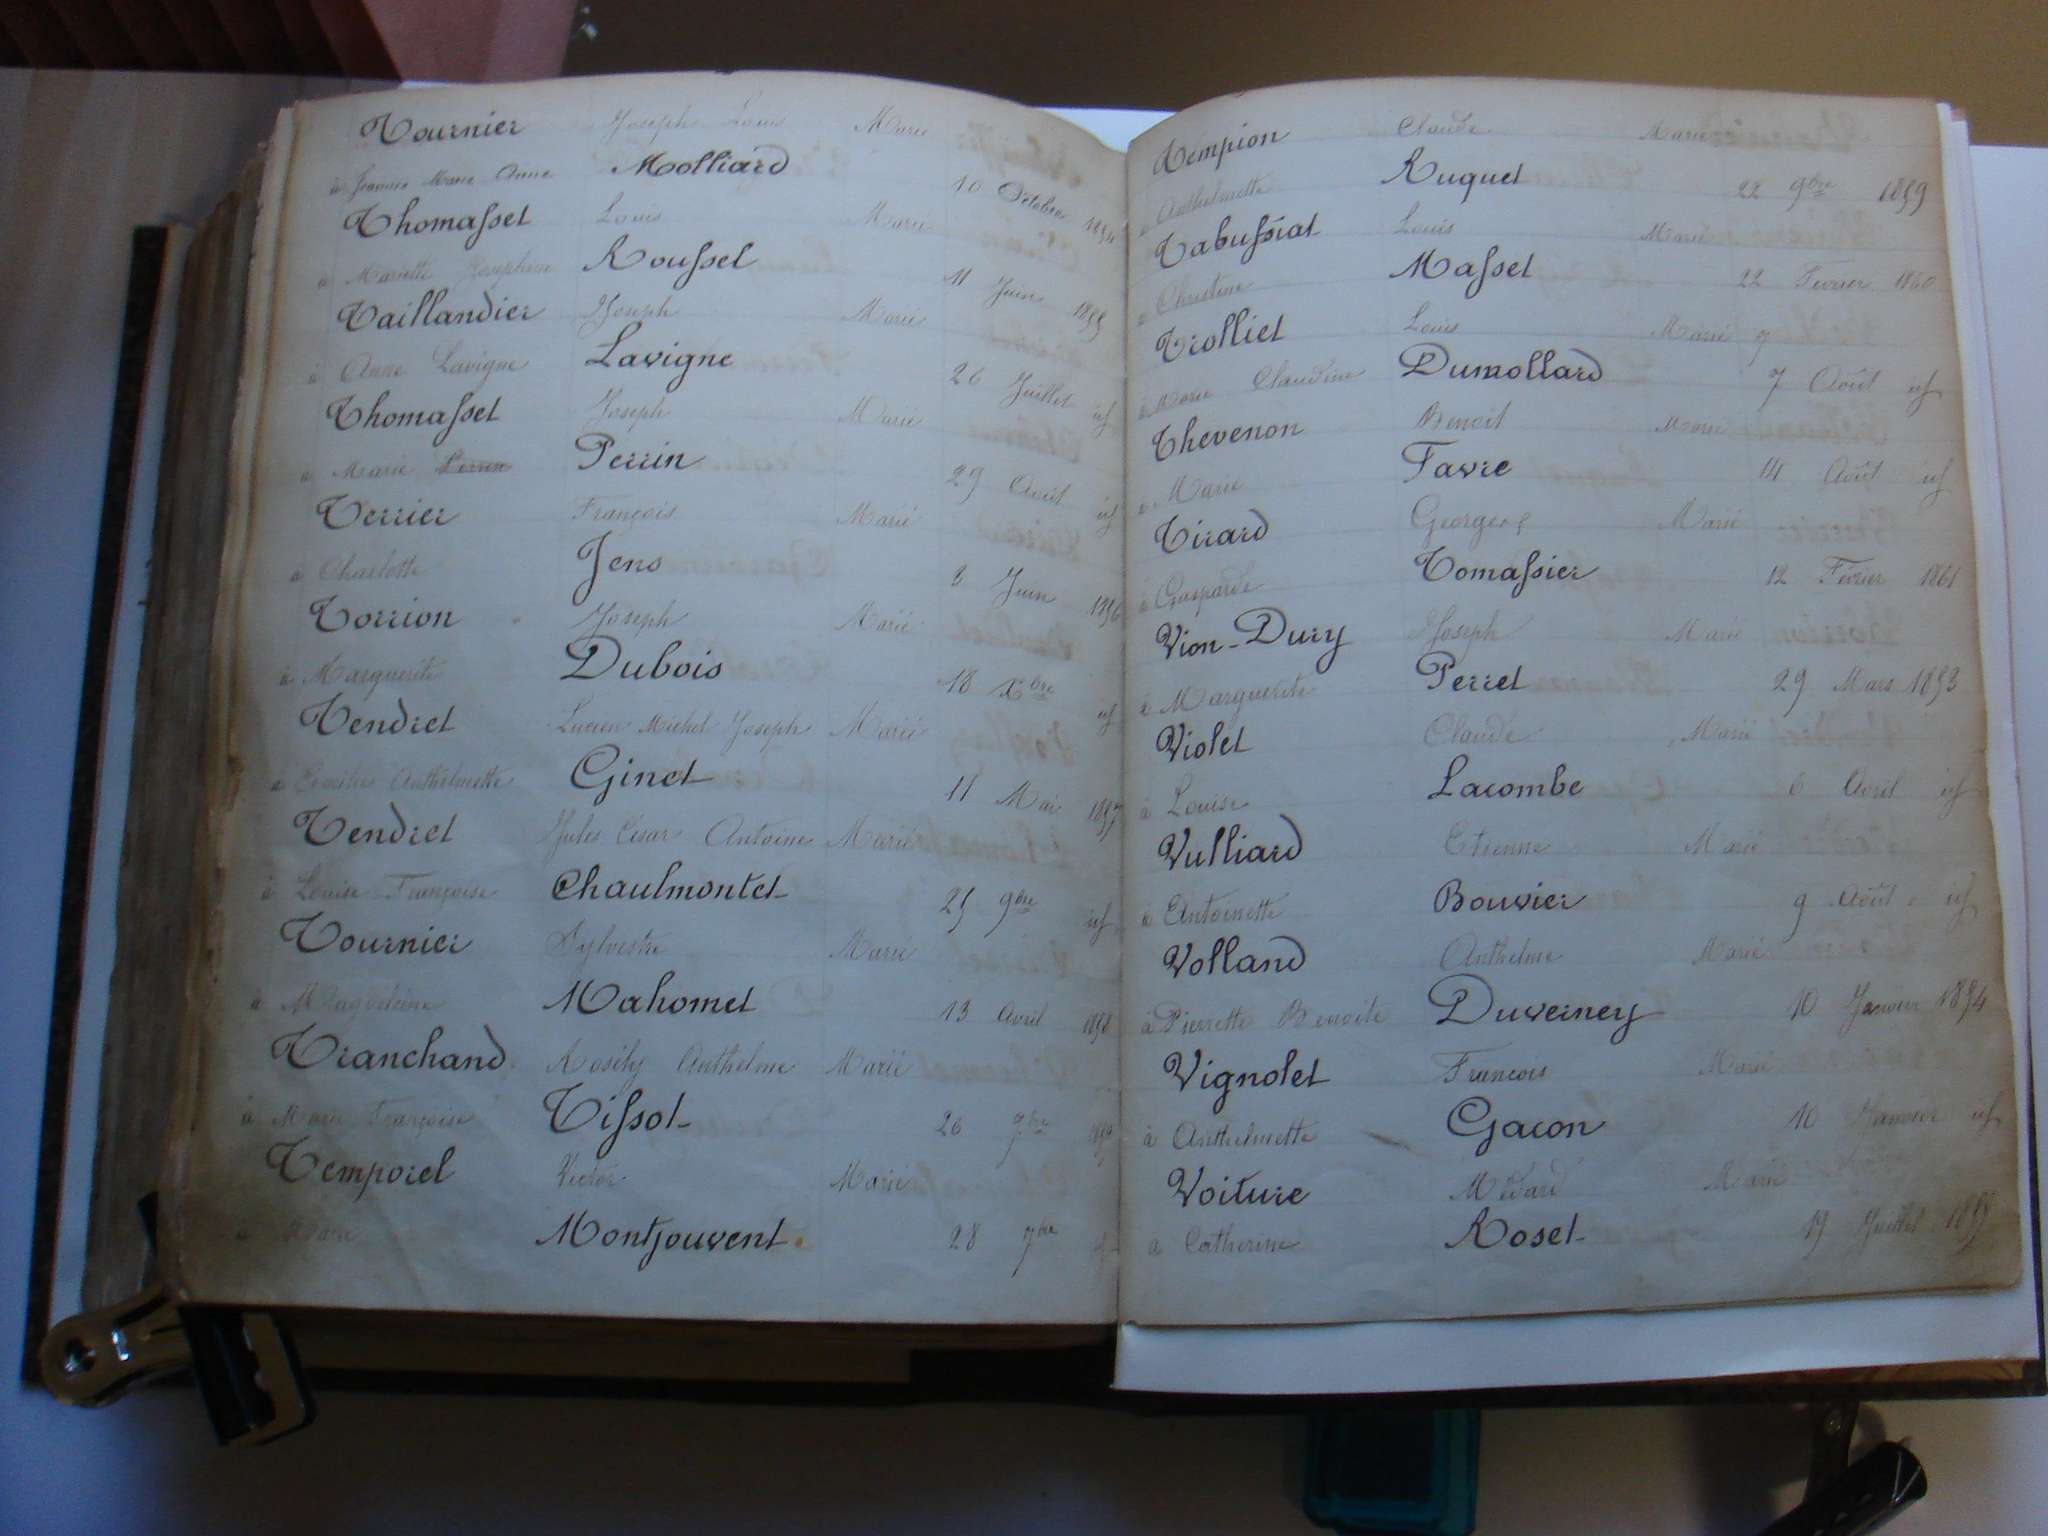 Tournier Joseph Louis Marié
à Jeanne Marie Anne Molliard 10 Octobre 1854
Thomasset Louis Marié
à Mariette Josephine Roussel 11 Juin 1855
Taillandier Joseph Marié
à Anne Lavigne Lavigne 26 Juillet id
Thomasset Joseph Marié
à Marie Perrin Perrin 29 Août id
Terrier François Marié
à Charlotte Jens 3 Juin 1856
Torrion Joseph Marié
à Marguerite Dubois 18 Xbre id
Tendret Lucien Michel Joseph Marié
à Anthelmette Ginet 11 Mai 1857
Tendret Jules César Antoine Marié
à Louise Françoise Chaulmontet 25 9bre id
Tournier Sylvestre Marié
à Magdeleine Mahomet 13 Avril 1858
Tranchand Anthelme Marié
à Marie Françoise Tissot 26 7bre
Temporel Victor Marié
à Marie Montjouvent 28 7bre
Tempion Claude Marié
à Anthelmette Ruquet 22 9bre 1859
Tabussiat Louis Marié
à Christine Masset 22 Février 1860
Trolliet Louis Marié
à Marie Claudine Dumollard 7 Août id
Thevenon Benoit Marié
à Marie Favre 14 Août id
Tirard Georges Marié
à Gasparde Tomassier 12 Février 1861
Vion-Dury Joseph Marié
à Marguerite Perret 29 Mars 1853
Violet Claude Marié
à Louise Lacombe 6 Avril id
Vulliard Etienne Marié
à Antoinette Bouvier 9 Août id
Volland Anthelme Marié
à Pierrette Benoite Duverney 10 Janvier 1854
Vignolet François Marié
à Anthelmette Gacon 10 Janvier id
Voiture Médard Marié
à Catherine Roset 19 Juillet